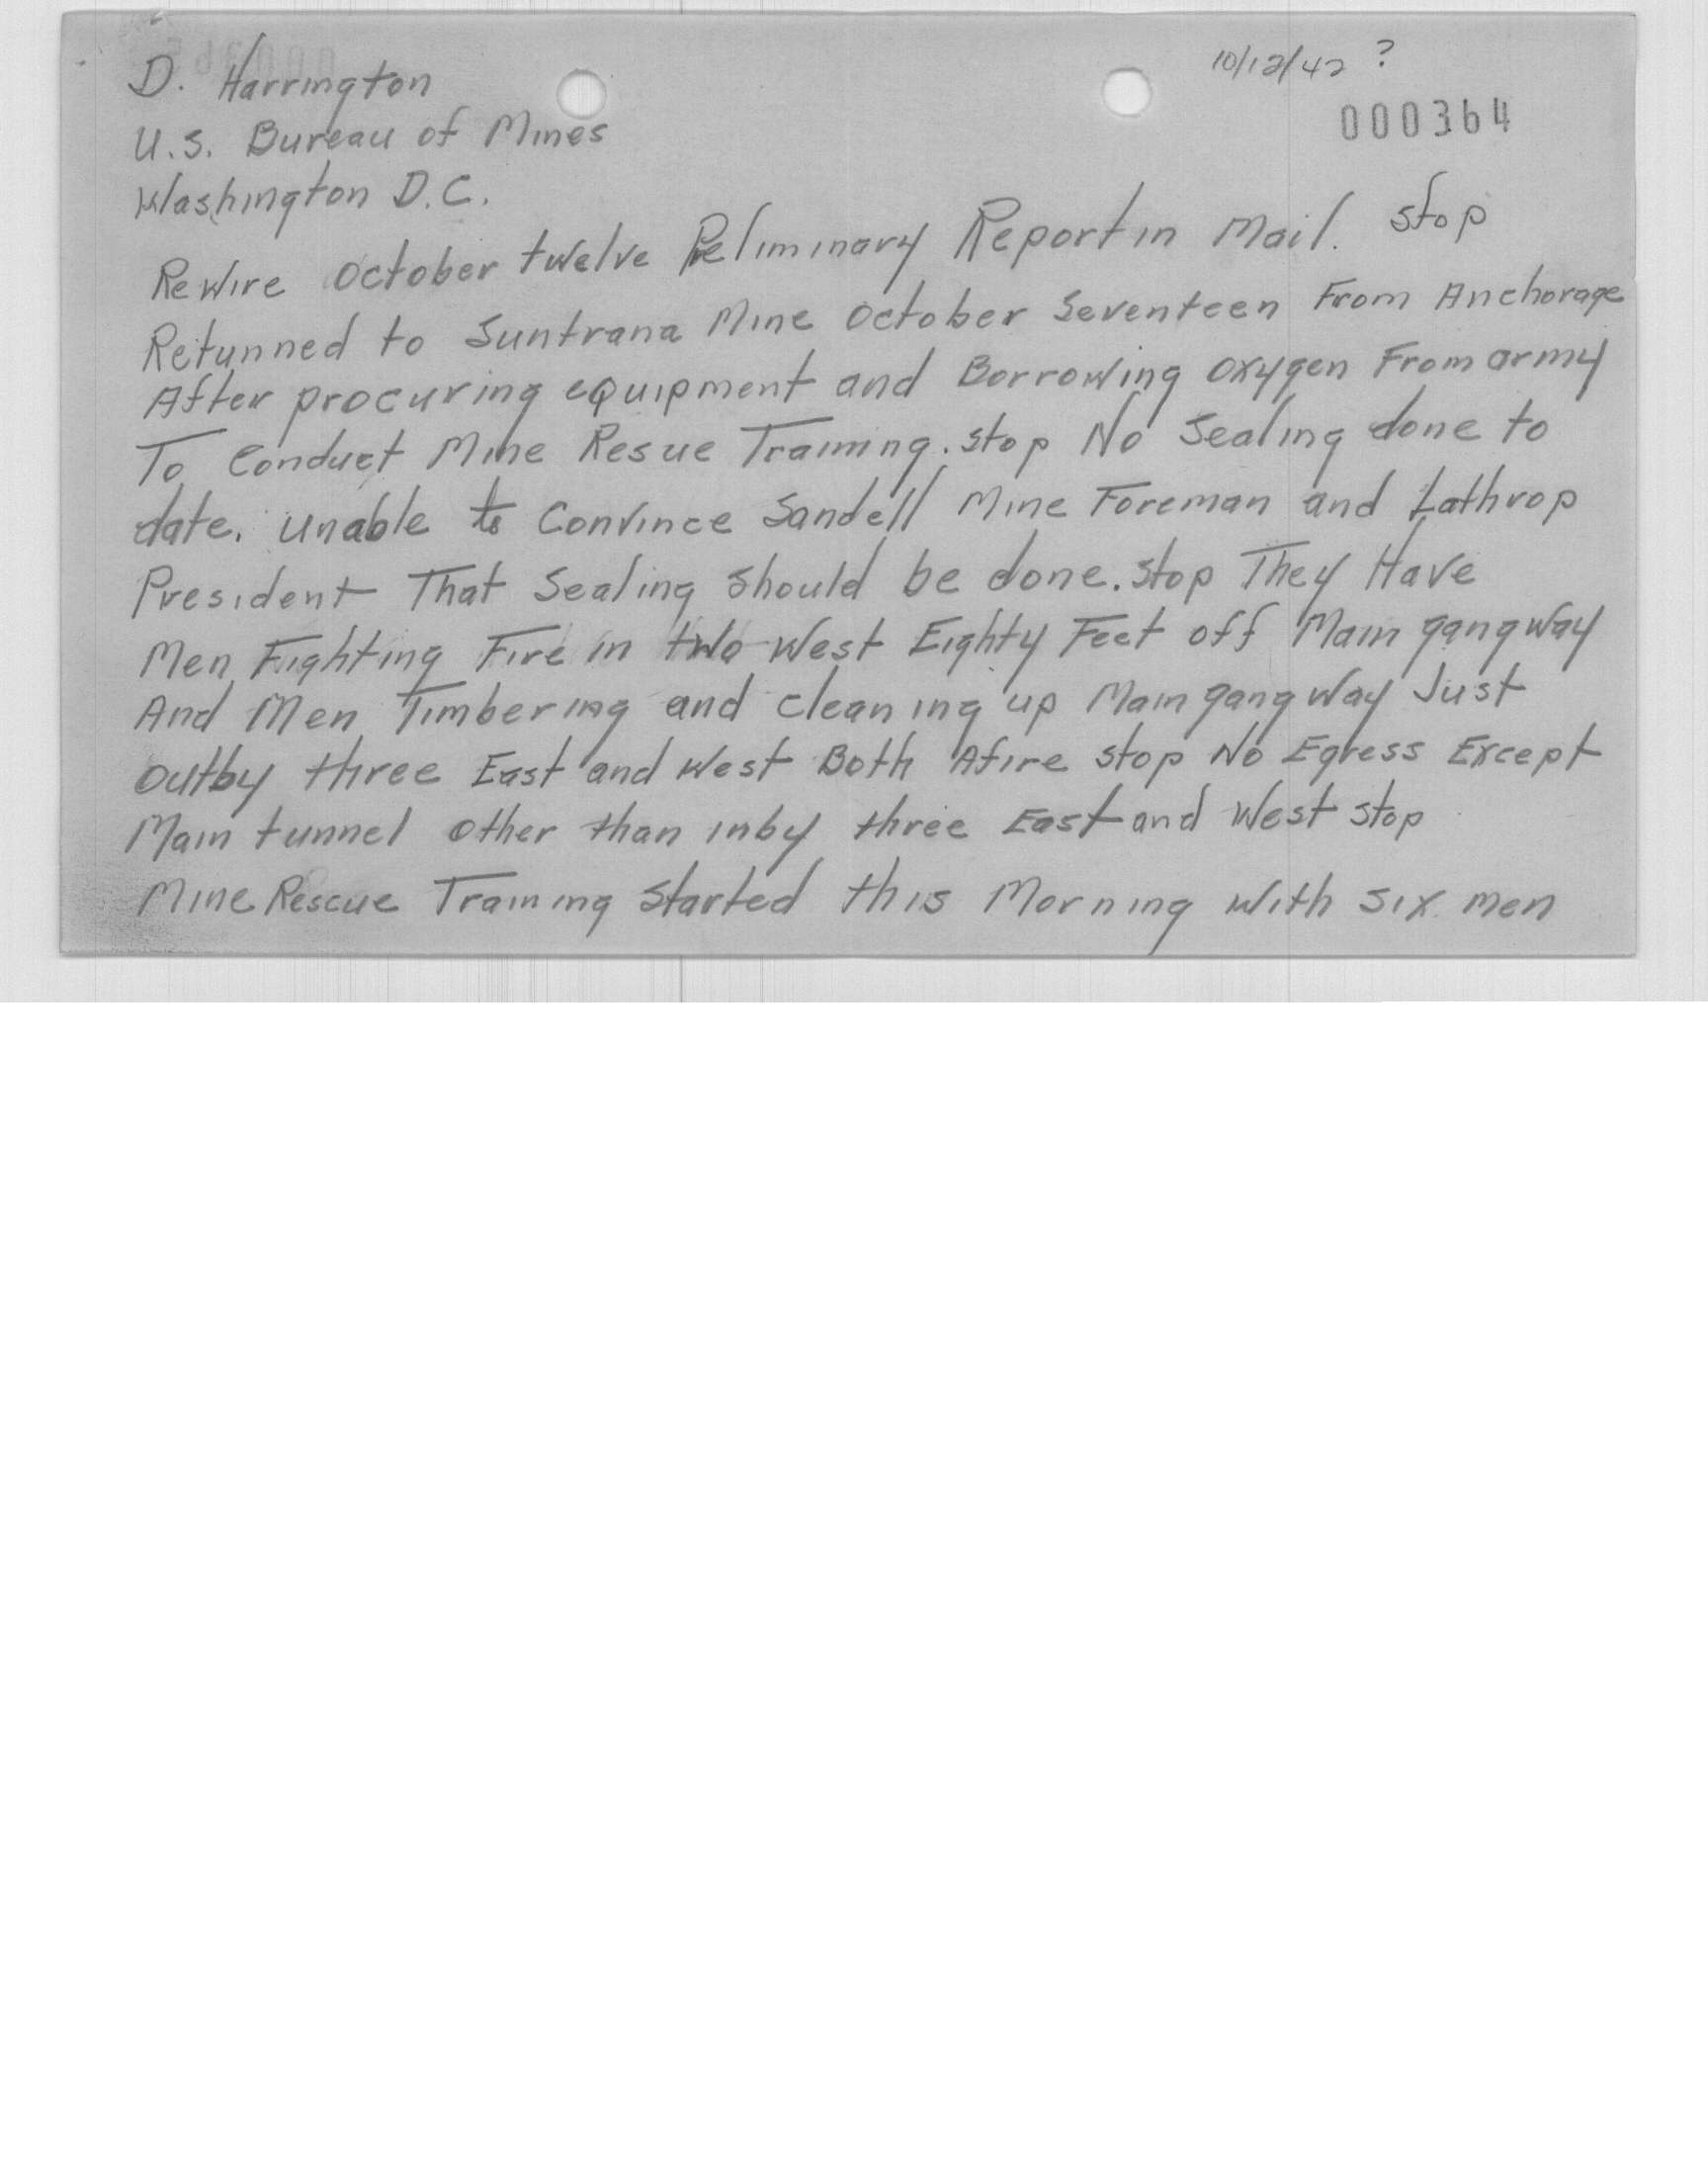 D. Harrington
10/12/42 ?
000364
U.S. Bureau of Mines
Washington D.C.
Rewire October twelve Preliminary Report in Mail. Stop
Retunned to Suntrana Mine October Seventeen From Anchorage
After procuring equipment and Borrowing oxygen From army
To Conduct Mine Resue Training. stop No Sealing done to
date. unable to Convince Sandell Mine Foreman and Lathrop
President That Sealing Should be done. Stop They Have
Men Fighting Fire in two West Eighty Feet off Main gangway
And Men Timbering and cleaning up Main gangway Just
outby three East and West Both Afire stop No Egress Except
Main tunnel other than inby three East and West stop
Mine Rescue Training Started this Morning with six men